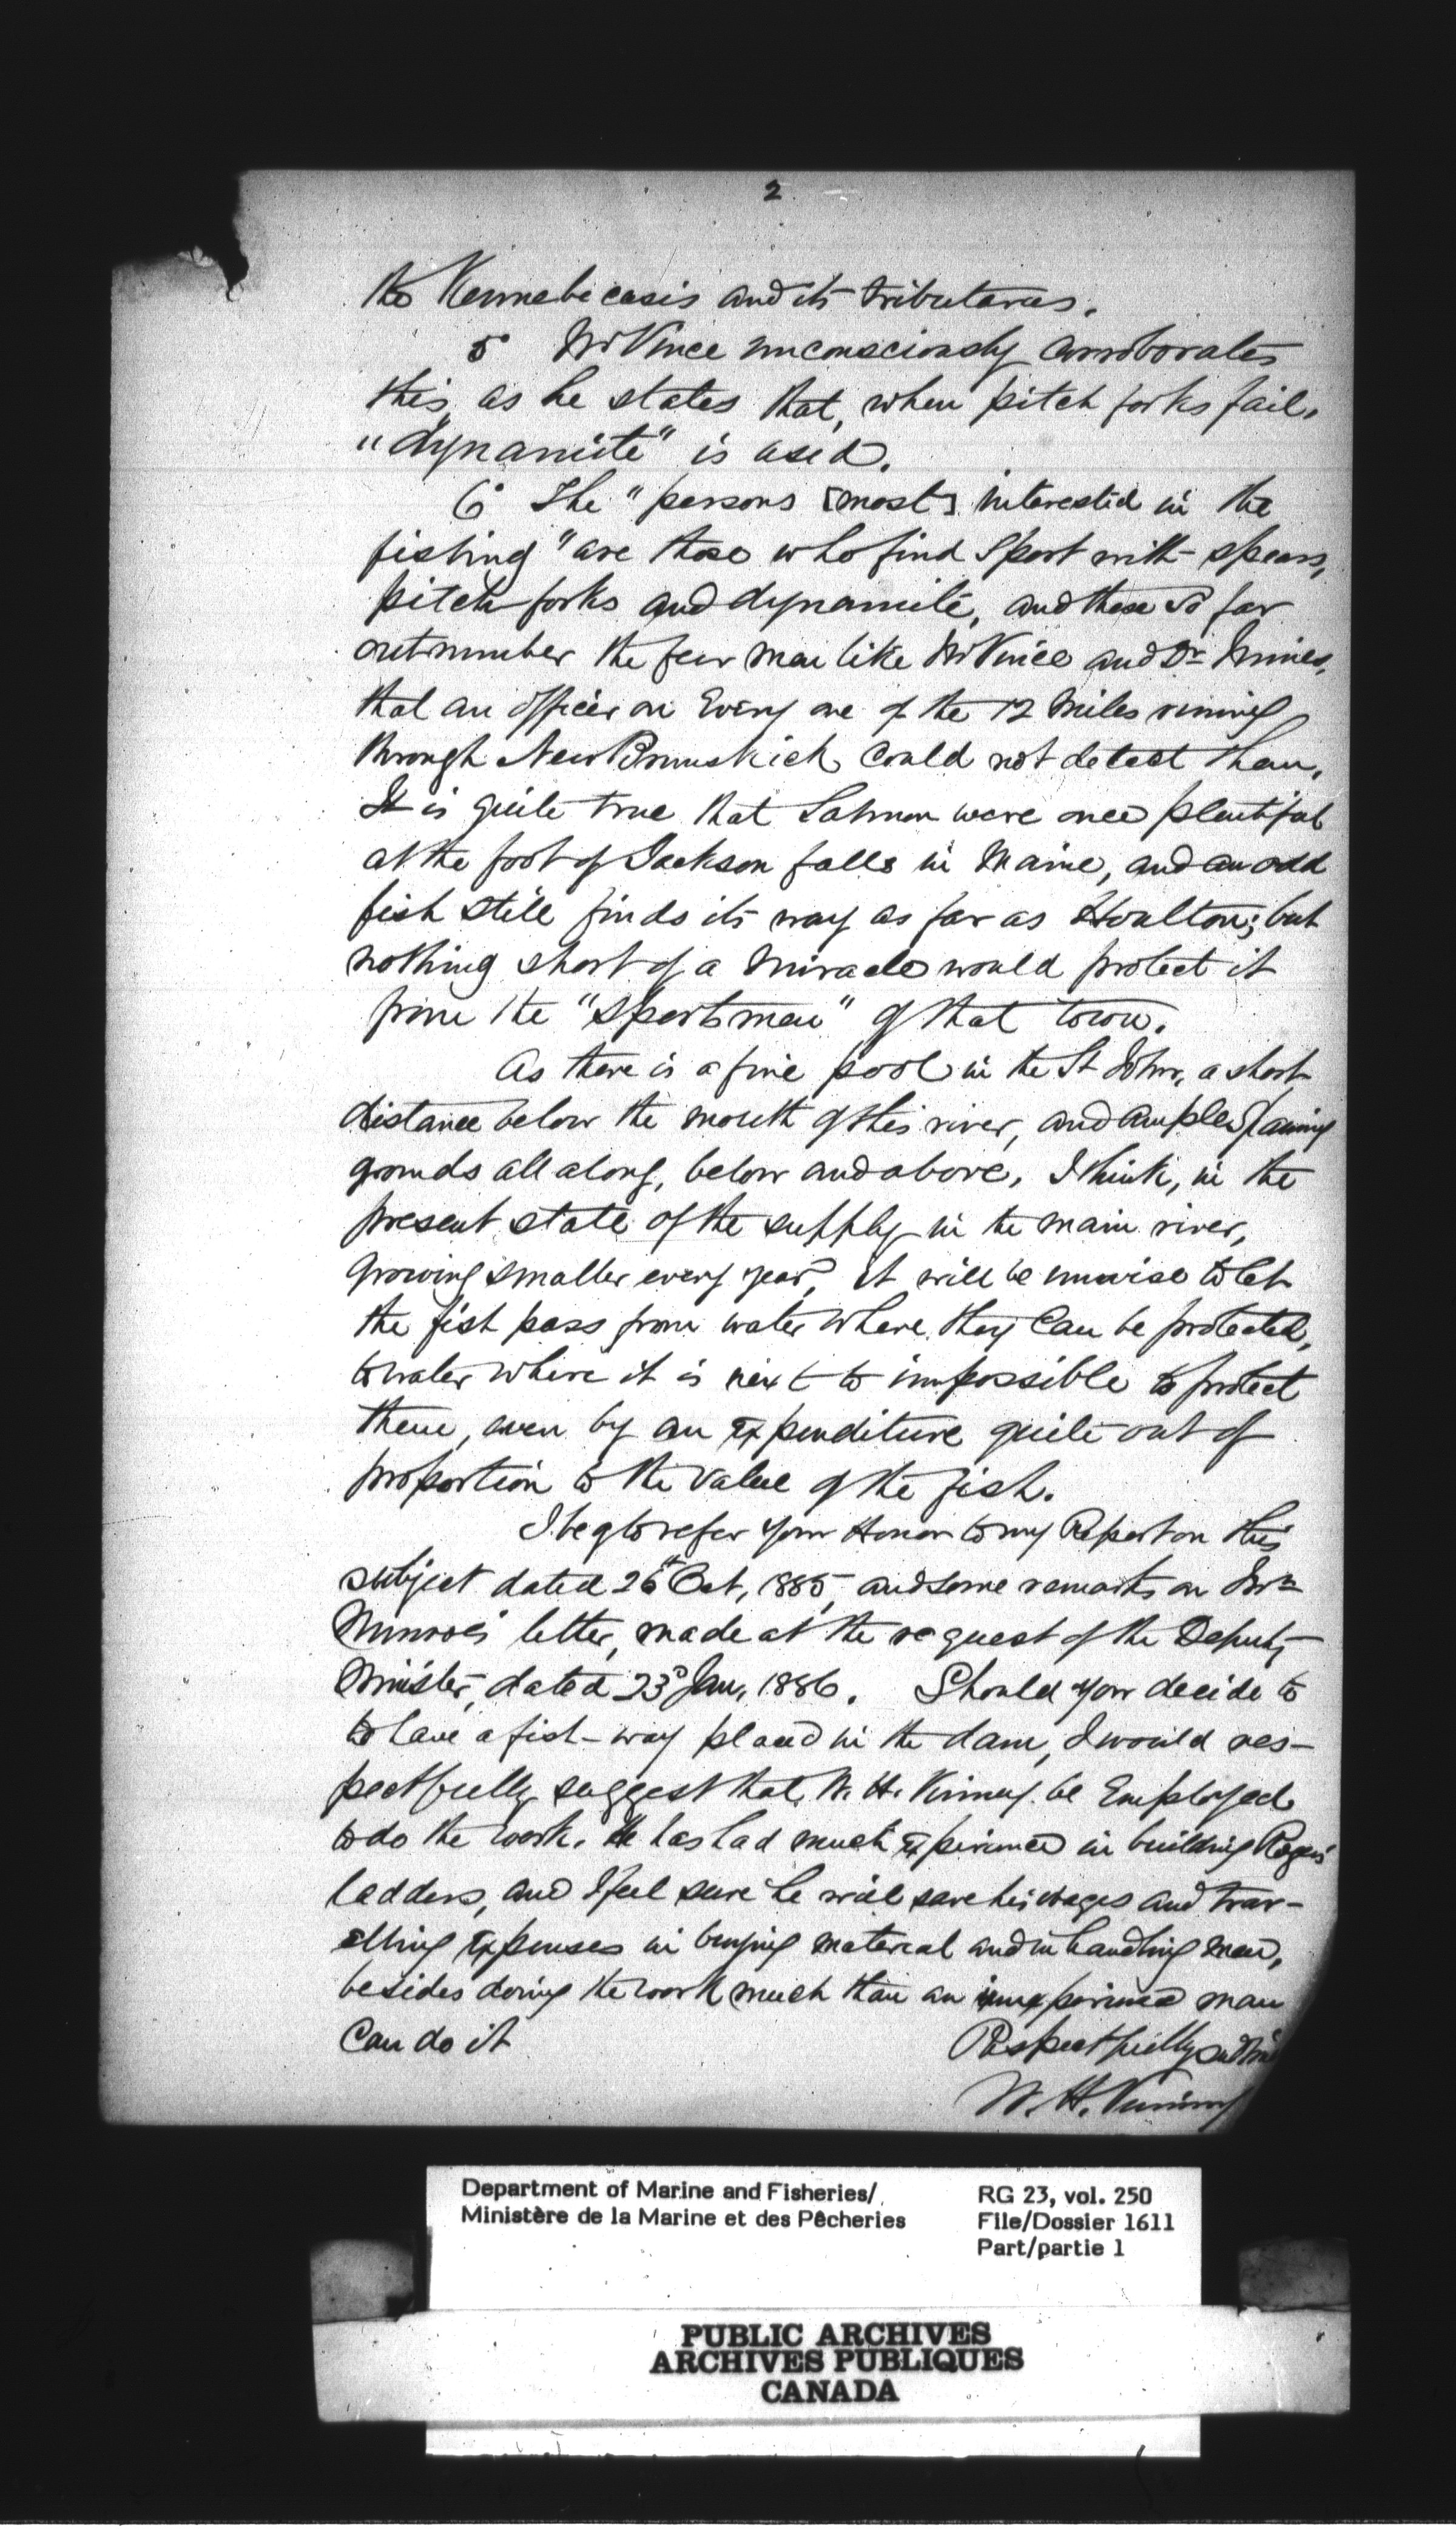 2
the Kennebecasis and its tributaries.
5° Mr Vince unconsciously corroborates
this, as he states that, when pitch forks fail,
"dynamite" is used.
6° The "persons [most] interested in the
fishing" are those who find sport with spears,
pitch forks and dynamite, and these so far
outnumber the few men like Mr Vince and Dr
that an officer on every one of the 12 miles running
through New Brunswick could not detect them.
It is quite true that Salmon were once plentiful
at the foot of Jackson falls in Maine, and an odd
fish still finds its way as far as Houlton; but
nothing short of a miracle would protect it
from the "sportsmen" of that town.
As there is a fine pool in the St John, a short
distance below the mouth of this river, and ample spawning
grounds all along, below and above, I think, in the
present state of the supply in the main river,
growing smaller every year, it will be unwise to let
the fish pass from water where they can be protected,
to water where it is next to impossible to protect
them, even by an expenditure quite out of
proportion to the value of the fish.
I beg to refer your Honor to my Report on this
subject dated 26th Oct, 1885, and some remarks on
letter, made at the request of the Deputy
Minister, dated 23d Jan, 1886. Should you decide to
to have a fish-way placed in the dam, I would res-
pectfully suggest that W. H. Kinney be employed
to do the work. He has had much experience in building Rogers
ladders, and I feel sure he will save his wages and trav-
elling expenses in buying material and in handling men,
besides doing the work much than an inexperienced man
can do it
Respectfully submi
W. H. Venning
Department of Marine and Fisheries/
Ministère de la Marine et des Pêcheries
RG 23, vol. 250
File/Dossier 1611
Part/partie 1
PUBLIC ARCHIVES
ARCHIVES PUBLIQUES
CANADA